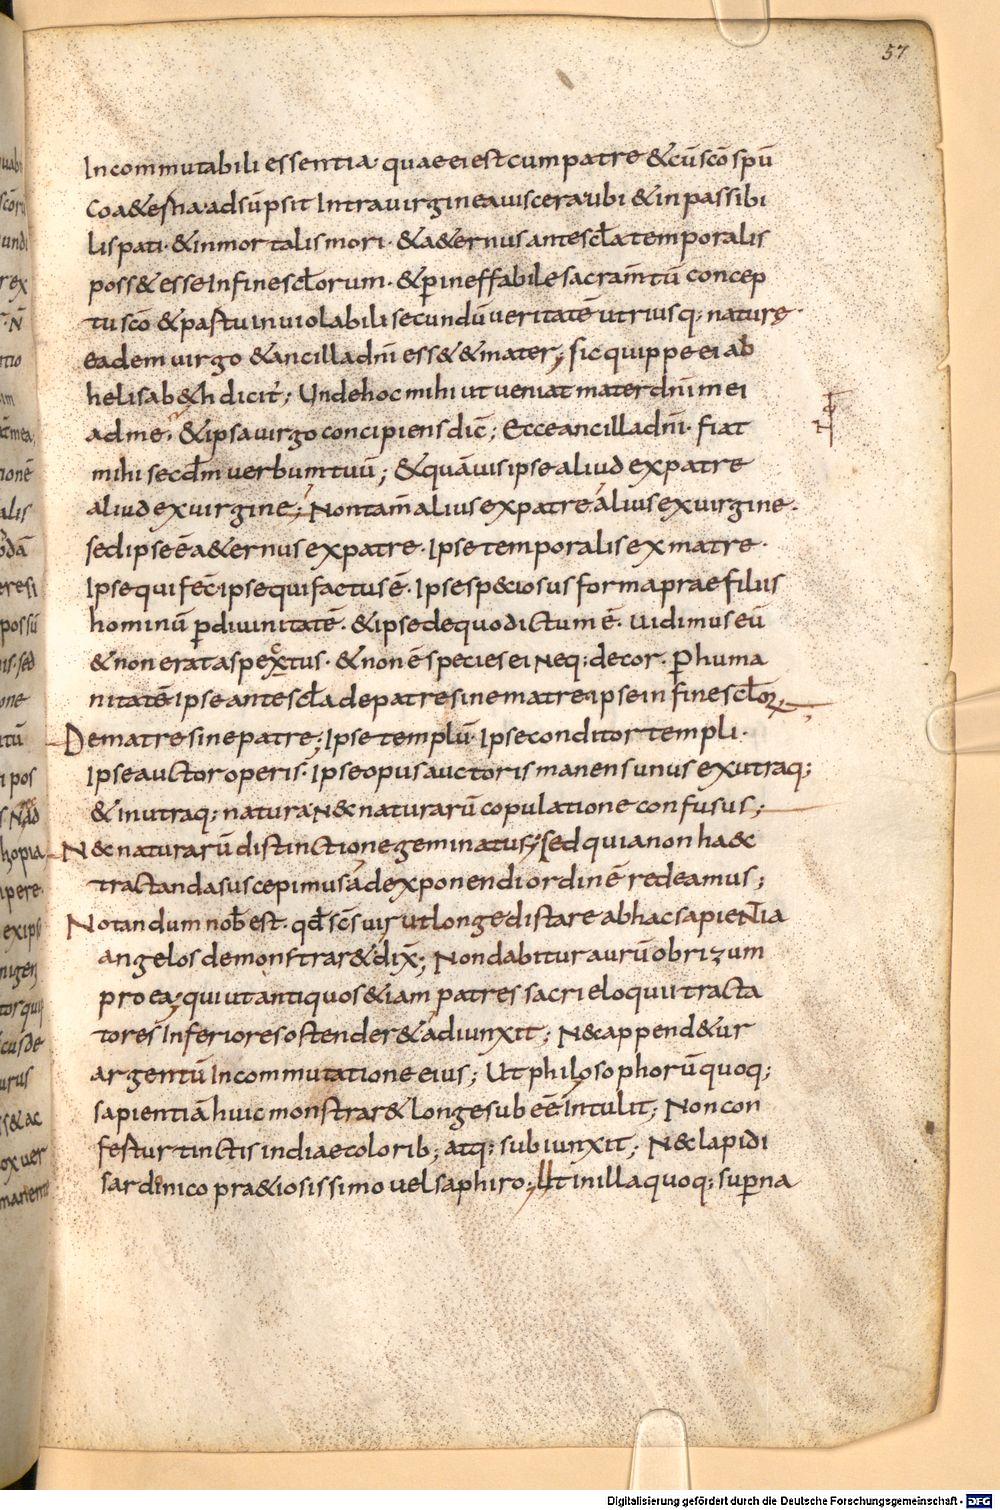 57
Incommutabili essentia· quae ei est cum patre & cū sc̄o spū
coa&erna· adsūpsit Intra uirginea uiscera· ubi & inpassibi
lis pati· & inmortalis mori· & a&ernus ante scl̄a temporalis
poss& esse In fine scl̄orum· & ꝑ ineffabile sacram̄tū concep
tu sc̄o & partu inuiolabili secundū ueritatē utriusq; naturę·
eadem uirgo & ancilla dn̄i ess& & mater; sic quippe ei ab
helisab&h dicit̄; Unde hoc mihi ut ueniat mater dn̄i mei
ad me· & ipsa uirgo concipiens dic̄; Ecce ancilla dn̄i· fiat
mihi secd̄m uerbum tuū; & quāuis ipse aliud ex patre
aliud ex uirgine; Non tam̄ alius ex patre alius ex uirgine·
sed ipse ē a&ernus ex patre· Ipse temporalis ex matre·
Ipse qui fec̄ ipse qui factus ē· Ipse sp&iosus forma prae filiis
hominū ꝑ diuinitatē· & ipse de quo dictum ē· Uidimus eū
& non erat aspectus· & non ē species ei neq; decor· ꝑ huma
nitatē Ipse ante scl̄a de patre sine matre ipse in fine scl̄oꝝ
De matre sine patre; Ipse templū· Ipse conditor templi·
Ipse auctor operis· Ipse opus auctoris manens unus ex utraq;
& in utraq; natura N& naturarū copulatione confusus;
N& naturarū distinctione geminatus; sed quia non haec
tractanda suscepimus ad exponendi ordinē redeamus;
Notandum nob̄ est· qd̄ sc̄s uir ut longe distare ab hac sapientia
angelos demonstrar& dix̄; Non dabitur aurū obrizum
pro ea; qui ut antiquos &iam patres sacri eloquii tracta
tores Inferiores ostender& adiunxit; N& append&ur
argentū In commutatione eius; Ut philosophorū quoq;
sapientiā huic monstrar& longe sub eē intulit; Non con
fertur tinctis indiae colorib; atq; subiunxit; N& lapidi
sardinico pra&iosissimo uel saphiro; Ut in illa quoq; suꝑna
Digitalisierung gefördert durch die Deutsche Forschungsgemeinschaft - DFG